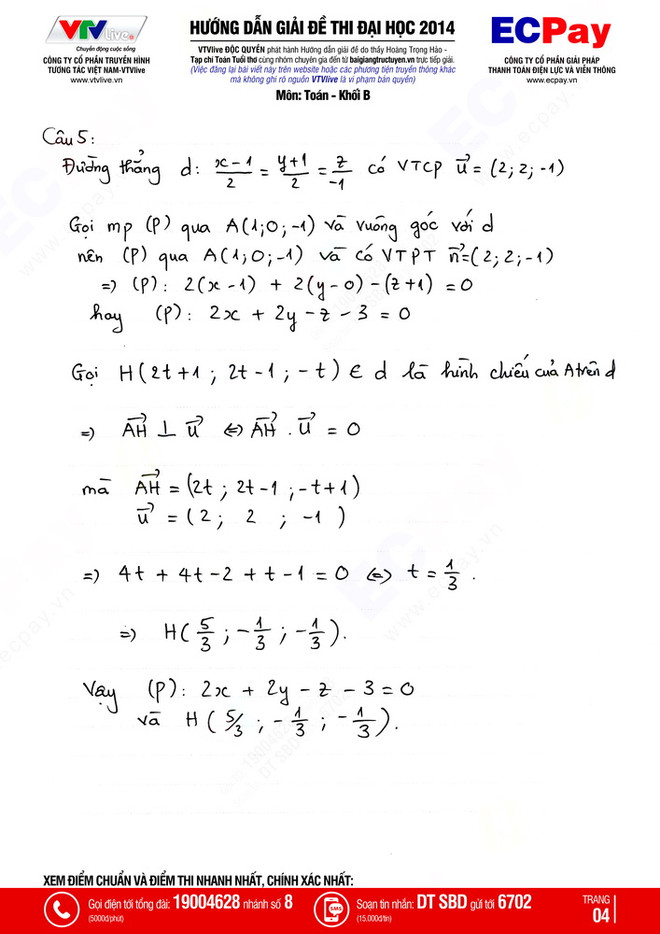 VTVLive
Chuyển động cuộc sống
CÔNG TY CỔ PHẦN TRUYỀN HÌNH
TƯƠNG TÁC VIỆT NAM-VTVlive
www.vtvlive.vn
HƯỚNG DẪN GIẢI ĐỀ THI ĐẠI HỌC 2014
VTVlive ĐỘC QUYỀN phát hành Hướng dẫn giải đề do thầy Hoàng Trọng Hảo -
Tạp chí Toán Tuổi thơ cùng nhóm chuyên gia đến từ baigiangtructuyen.vn trực tiếp giải.
(Việc đăng lại bài viết này trên website hoặc các phương tiện truyền thông khác
mà không ghi rõ nguồn VTVlive là vi phạm bản quyền)
Môn: Toán - Khối B
ECPay
CÔNG TY CỔ PHẦN GIẢI PHÁP
THANH TOÁN ĐIỆN LỰC VÀ VIỄN THÔNG
www.ecpay.vn
Câu 5:
Đường thẳng d: (x-1)/2 = (y+1)/2 = z/-1 có VTCP u⃗ = (2; 2; -1)
Gọi mp (P) qua A(1; 0; -1) và vuông góc với d
nên (P) qua A(1; 0; -1) và có VTPT n⃗ = (2; 2; -1)
=> (P): 2(x-1) + 2(y-0) - (z+1) = 0
hay (P): 2x + 2y - z - 3 = 0
Gọi H(2t+1; 2t-1; -t) ∈ d là hình chiếu của A trên d
=> AH⃗ ⊥ u⃗ <=> AH⃗ . u⃗ = 0
mà AH⃗ = (2t; 2t-1; -t+1)
u⃗ = (2; 2; -1)
=> 4t + 4t - 2 + t - 1 = 0 <=> t = 1/3.
=> H(5/3; -1/3; -1/3).
Vậy (P): 2x + 2y - z - 3 = 0
và H(5/3; -1/3; -1/3).
XEM ĐIỂM CHUẨN VÀ ĐIỂM THI NHANH NHẤT, CHÍNH XÁC NHẤT:
Gọi điện tới tổng đài: 19004628 nhánh số 8
(5000đ/phút)
SMS
Soạn tin nhắn: DT SBD gửi tới 6702
(15.000đ/tin)
TRANG
04